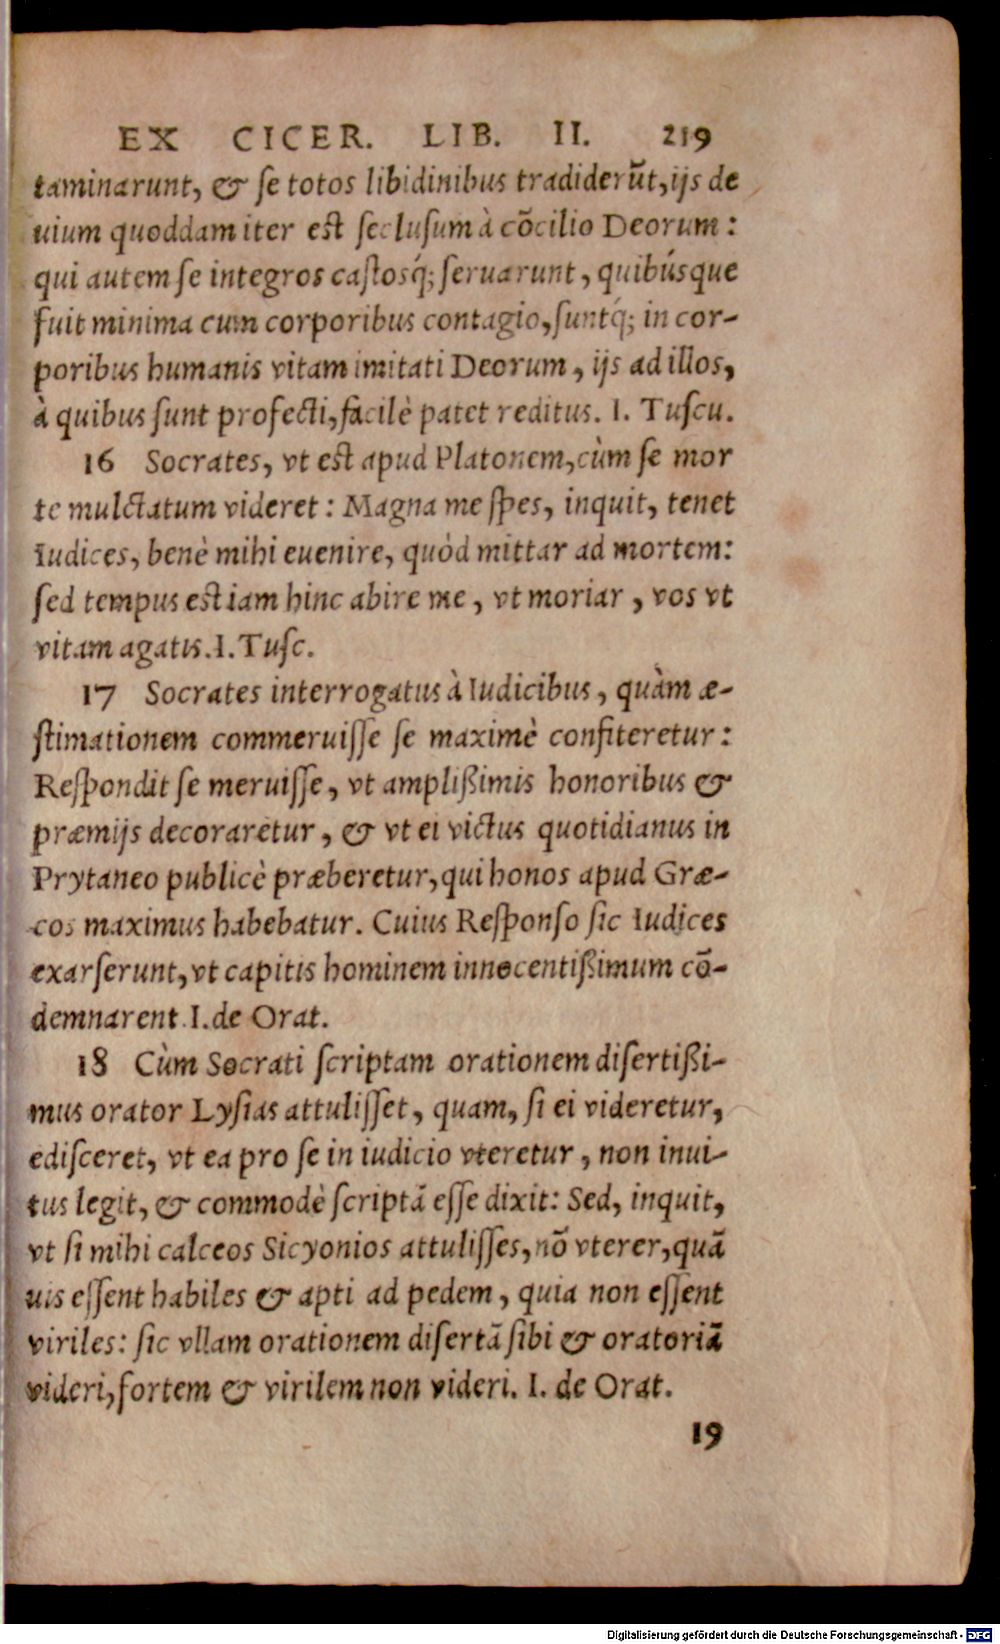 EX CICER. LIB. II. 219
taminarunt, & se totos libidinibus tradiderūt, ijs de
uium quoddam iter est seclusum à cōcilio Deorum:
qui autem se integros castosq́; seruarunt, quibúsque
fuit minima cum corporibus contagio, suntq́; in cor-
poribus humanis vitam imitati Deorum, ijs ad illos,
à quibus sunt profecti, facilè patet reditus. I. Tuscu.
16 Socrates, vt est apud Platonem, cùm se mor
te mulctatum videret: Magna me spes, inquit, tenet
Iudices, benè mihi euenire, quòd mittar ad mortem:
sed tempus est iam hinc abire me, vt moriar, vos vt
vitam agatis. I. Tusc.
17 Socrates interrogatus à Iudicibus, quàm æ-
stimationem commeruisse se maximè confiteretur:
Respondit se meruisse, vt amplißimis honoribus &
præmijs decoraretur, & vt ei victus quotidianus in
Prytaneo publicè præberetur, qui honos apud Græ-
cos maximus habebatur. Cuius Responso sic Iudices
exarserunt, vt capitis hominem innocentißimum cō-
demnarent. I. de Orat.
18 Cùm Socrati scriptam orationem disertißi-
mus orator Lysias attulisset, quam, si ei videretur,
edisceret, vt ea pro se in iudicio vteretur, non inui-
tus legit, & commodè scriptā esse dixit: Sed, inquit,
vt si mihi calceos Sicyonios attulisses, nō vterer, quā
uis essent habiles & apti ad pedem, quia non essent
viriles: sic vllam orationem disertā sibi & oratoriā
videri, fortem & virilem non videri. I. de Orat.
19
Digitalisierung gefördert durch die Deutsche Forschungsgemeinschaft - DFG